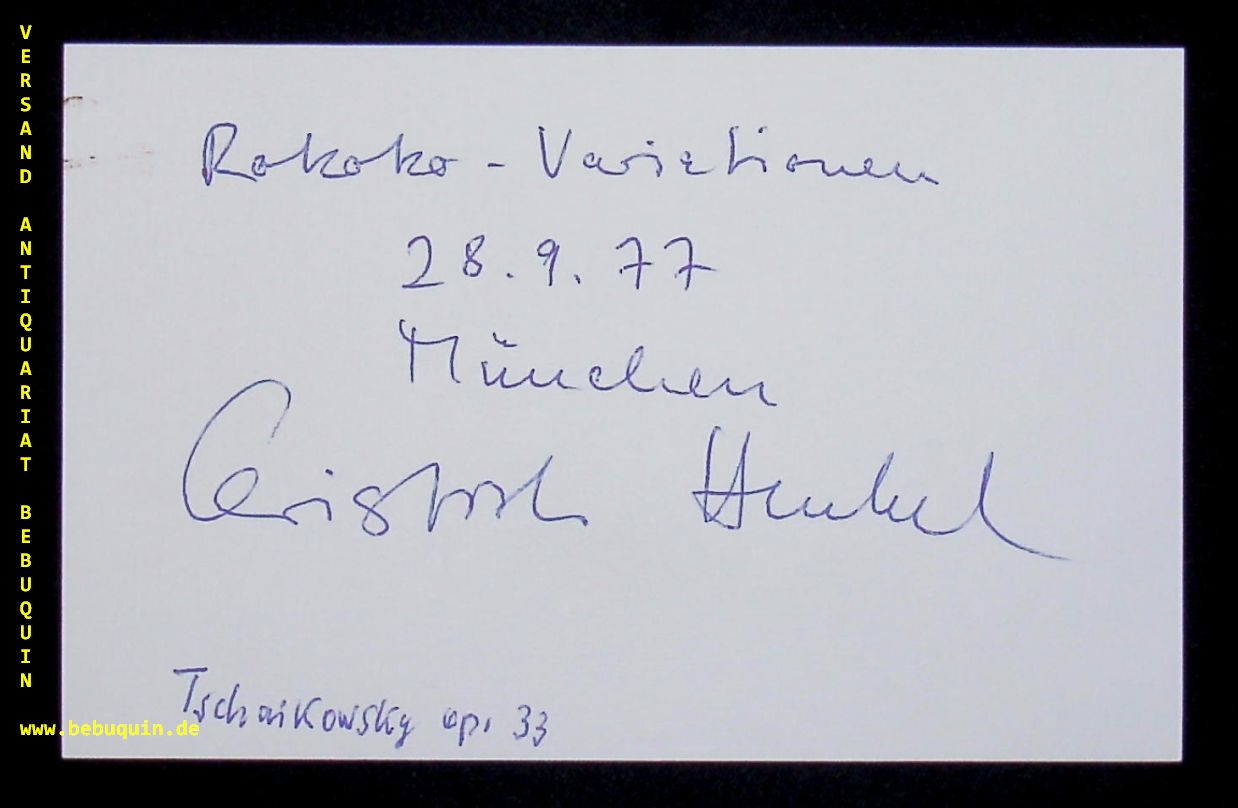 VERSAND ANTIQUARIAT BEBUQUIN
Rokoko - Variationen
28.9.77
München
Christoph Henkel
Tschaikowsky op. 33
www.bebuquin.de